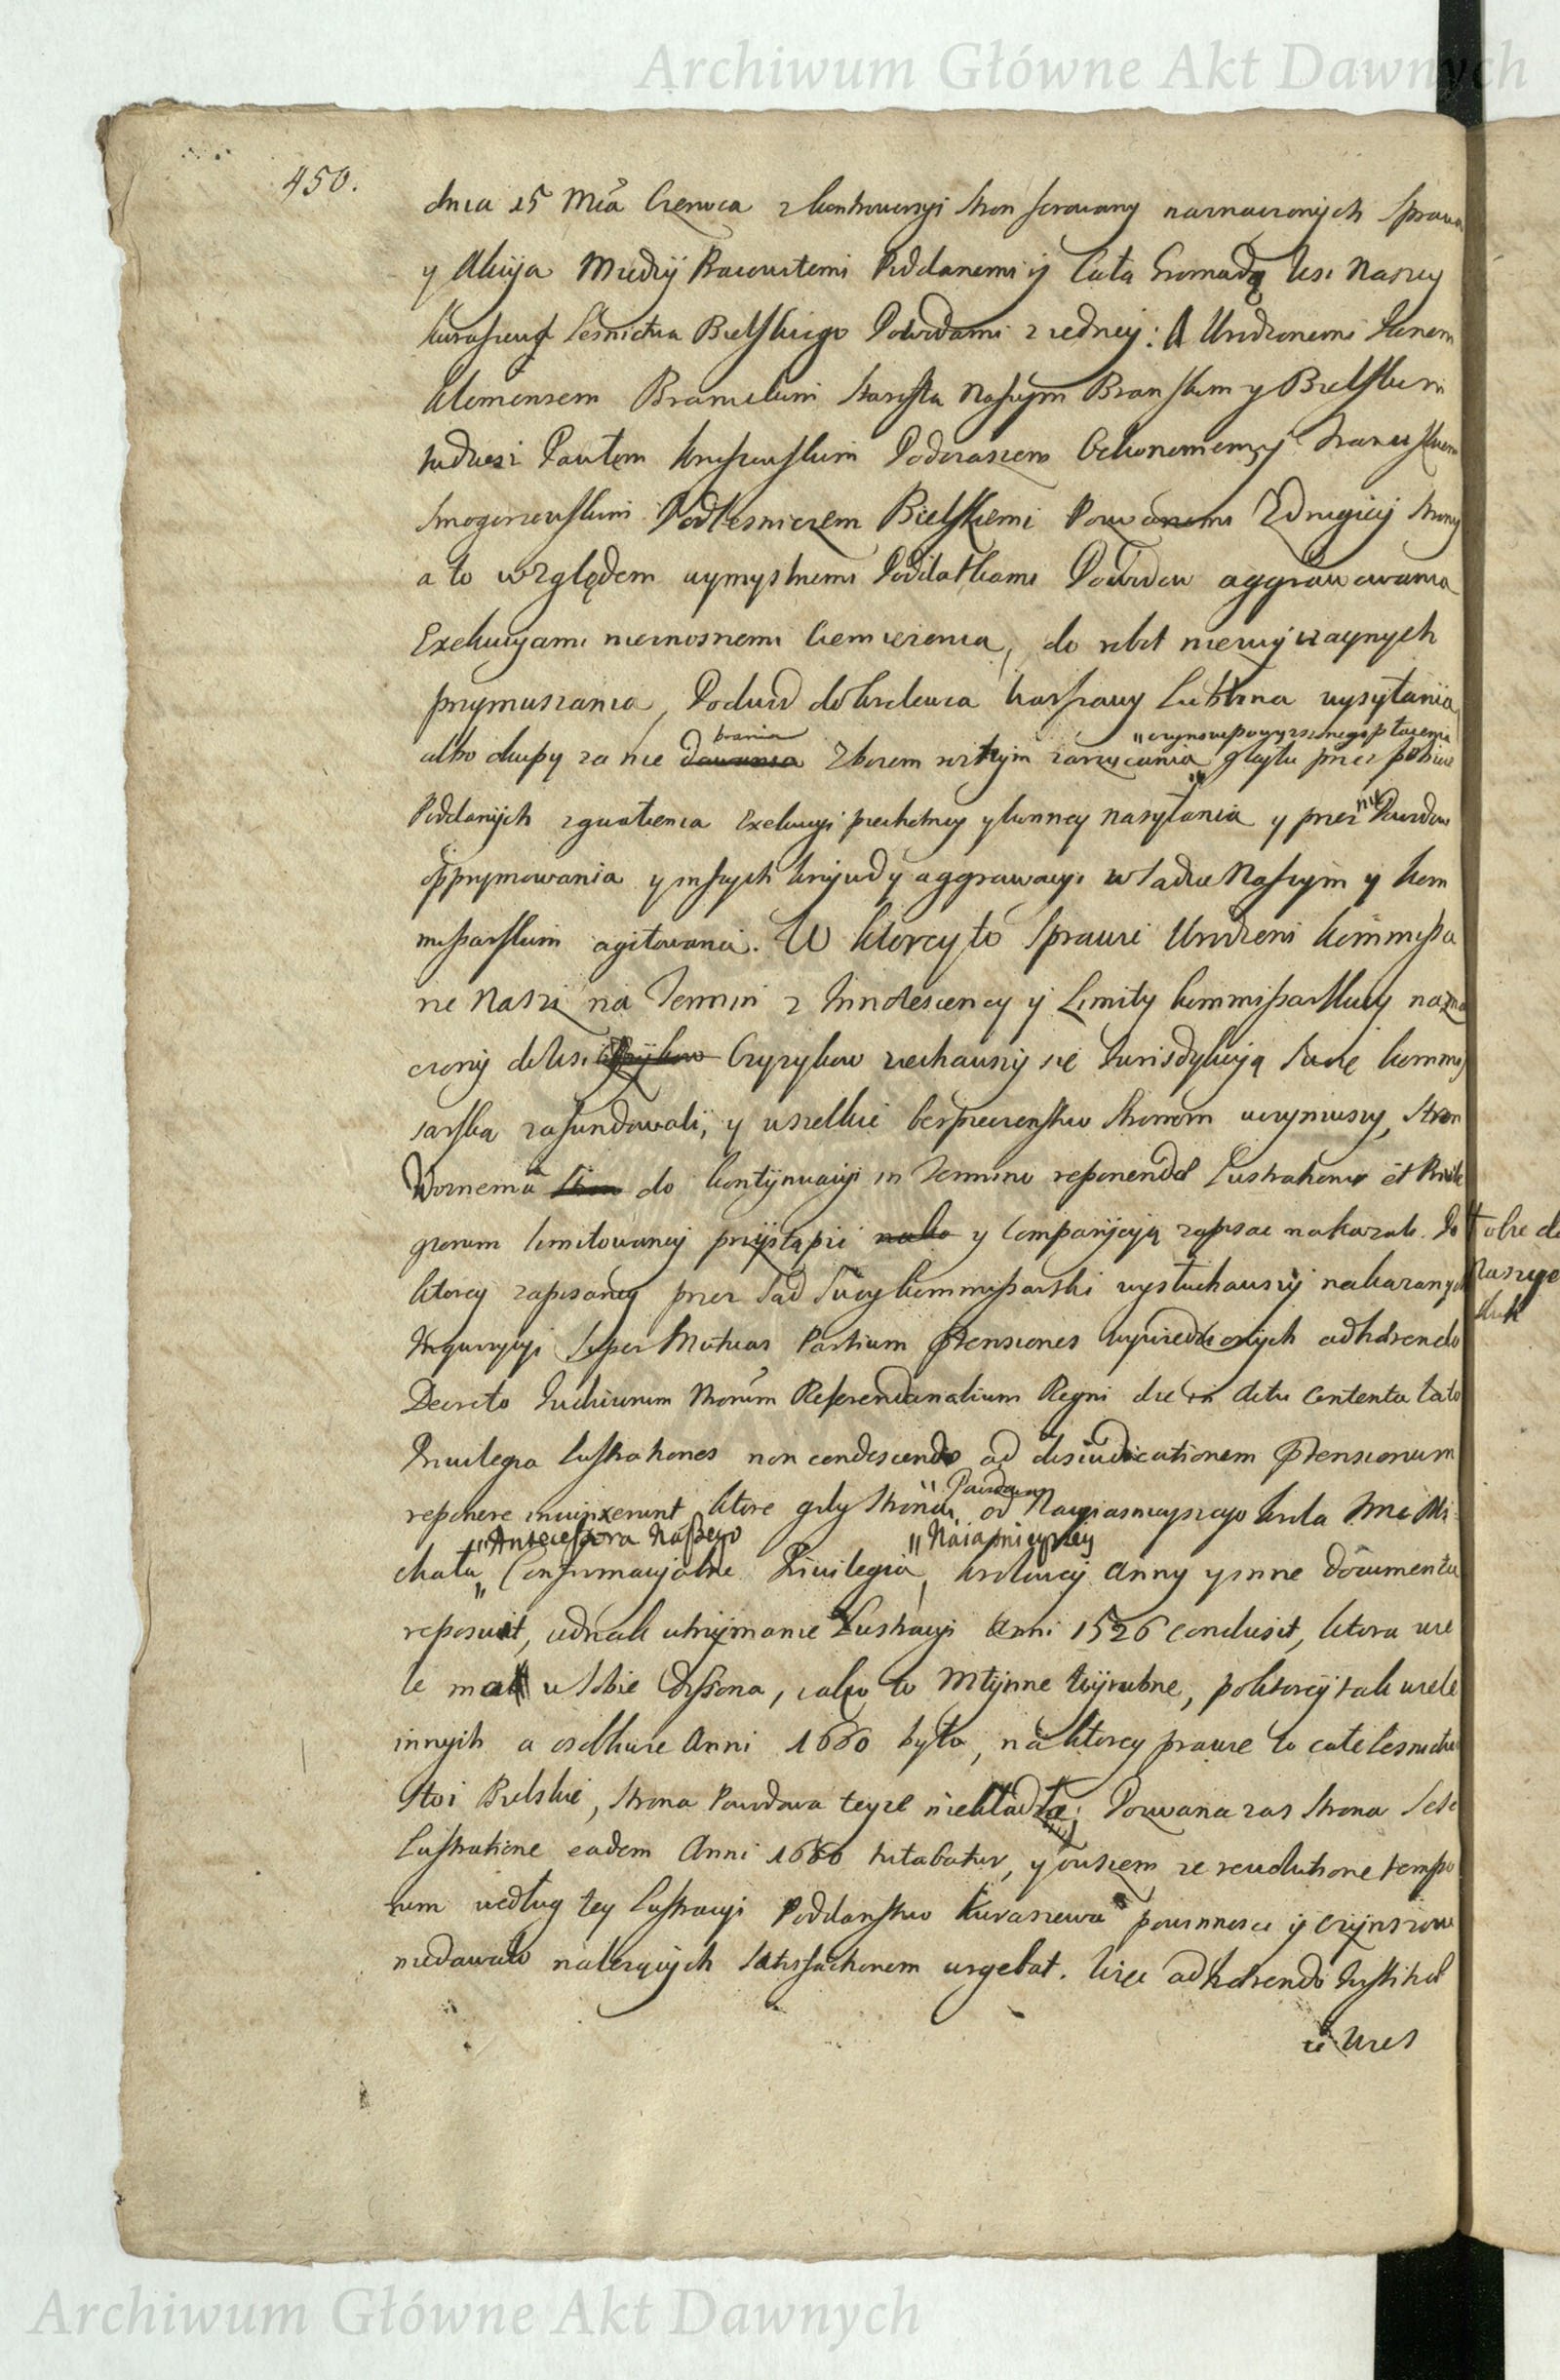 Archiwum Główne Akt Dawnych
450.
dnia 25 Mca Czerwca z kontrowersyi stron ferowany naznaczonych Sprawa
y Akcyja Miedzÿ Pracowitemi Poddanemi ÿ Całą Gromadą wsi Naszey
Leśnictwa Bielskiego Powodami z iedney: A Urodzonemi Janem
Klemensem Branickim Starostą Naszym Branskim y Bielskim
tudziesz Pawłem Podczaszem Oekonomem y
Podlesniczem Bielskiemi Pozwanemi Z drugiey strony
a to względem wymyslnemi Podatkami Powodow aggrawowania
Exekucyami nieznosnemi Ciemiezenia, do robot niezwyczaynych
przymuszania, Podwod do Krolewca Warszawy Lublina wysyłania
albo okupy za nie dawania brania Zborem rożnym zarzucania " czynszu powyzszonego płacenia
Poddanych zgwałcenia Exekucyi piechotney y konney nasyłania y przez nie Powodow
opprymowania y inszych krzywd y aggrawacyi w Sądzie Naszym y Kom
missarskim agitowana. W ktorey to Sprawie Urodzeni Kommissa
rze Nasi na Termin z Innotescency y Limity Kommissarskiey nazna
czony do wsi Czyzykow ziechawszy się Jurisdykcyą Swoię Kommis
sarską zafundowali, y wszelkie bespieczenstwo stronom uczyniwszy, stron
do kontynuacyi in Termino reponendar Lustrationum et Privile
giorum limitowaney przystąpić y Comparycyą zapisac nakazali. Po
ktorey zapisaney przez Sad Swoy Kommissarski wysłuchawszy nakazanych
Inquizycyi super Mutuas Partium Ptensiones wywiedzionych adhærendo
Decreto Judiciorum Nrorum Referendarialium Regni die in Actu Contenta lato
Privilegia Lustrationes non condescendo ad disiudicationem Ptensionum
reponere iniunxerunt ktore gdy strona " Powodowa od Nayiasnieyszego Krola Jmci Mi
chała " Antecessora Naszego Confirmacyalne Privilegia, " Naiaśnieyszey Krolowey Anny y inne Documenta
reposuit, iednak utrzymanie Lustracyi Anni 1526 conclusit, ktora wie
le ma w Sobie dissona, iako to Młynne wyrubne, po ktorey tak wiele
innych a osobliwie Anni 1660 było, na ktorey prawie to całe Lesnictwo
stoi Bielskie, strona Powodowa teyze niekładła; Pozwana zas strona Sese
Lustratione eadem Anni 1660 tutabatur, y owszem ze revolutione tempo
rum według tey Lustracyi Poddanstwo Kuraszewa powinnosci y czynszow
niedawało nalezących satisfactionem urgebat. Więc adhærendo Justitiæ